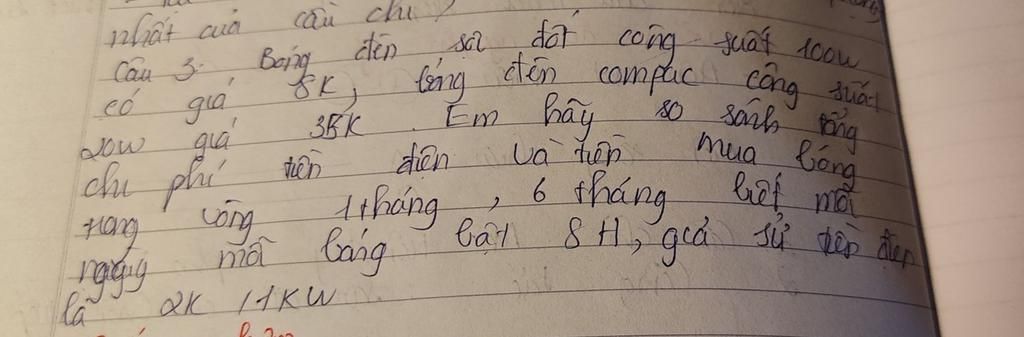 nhất của cầu chì?
Câu 3: Bóng đèn sợi đốt công suất 100w
có giá 8K, bóng đèn compac công suất
20w giá 35K. Em hãy so sánh tổng
chi phí tiền điện và tiền mua bóng
trong vòng 1 tháng, 6 tháng biết mỗi
ngày mỗi bóng bật 8H, giả sử tiền điện
là 2K /1KW